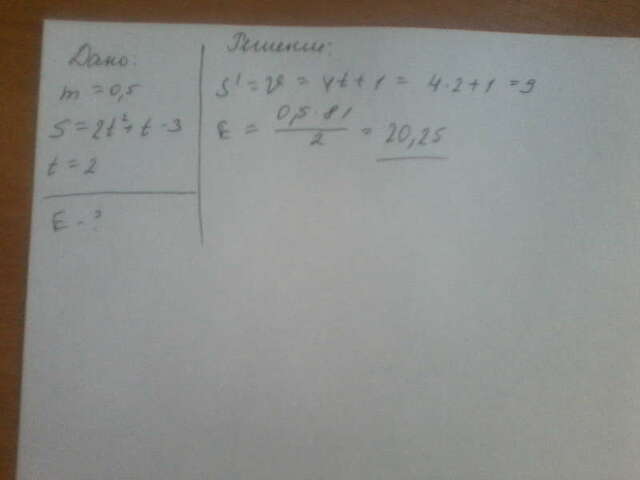 Дано:
m = 0,5
S = 2t²+t-3
t = 2
E - ?
Решение:
S' = v = 4t+1 = 4·2+1 = 9
E = 0,5·81 / 2 = 20,25